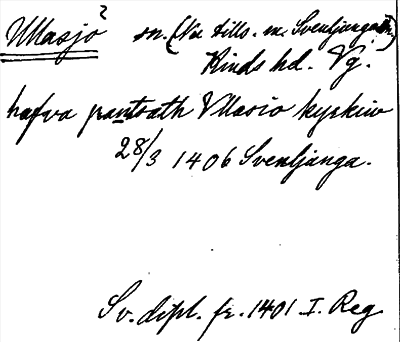 Ullasjö ?
sn. (Nu tills. m. Svenljunga sn.)
Kinds hd. Vg.
hafva pantsath Vllasio kyrkiw
28/3 1406 Svenljunga.
Sv. dipl. fr. 1401 I. Reg